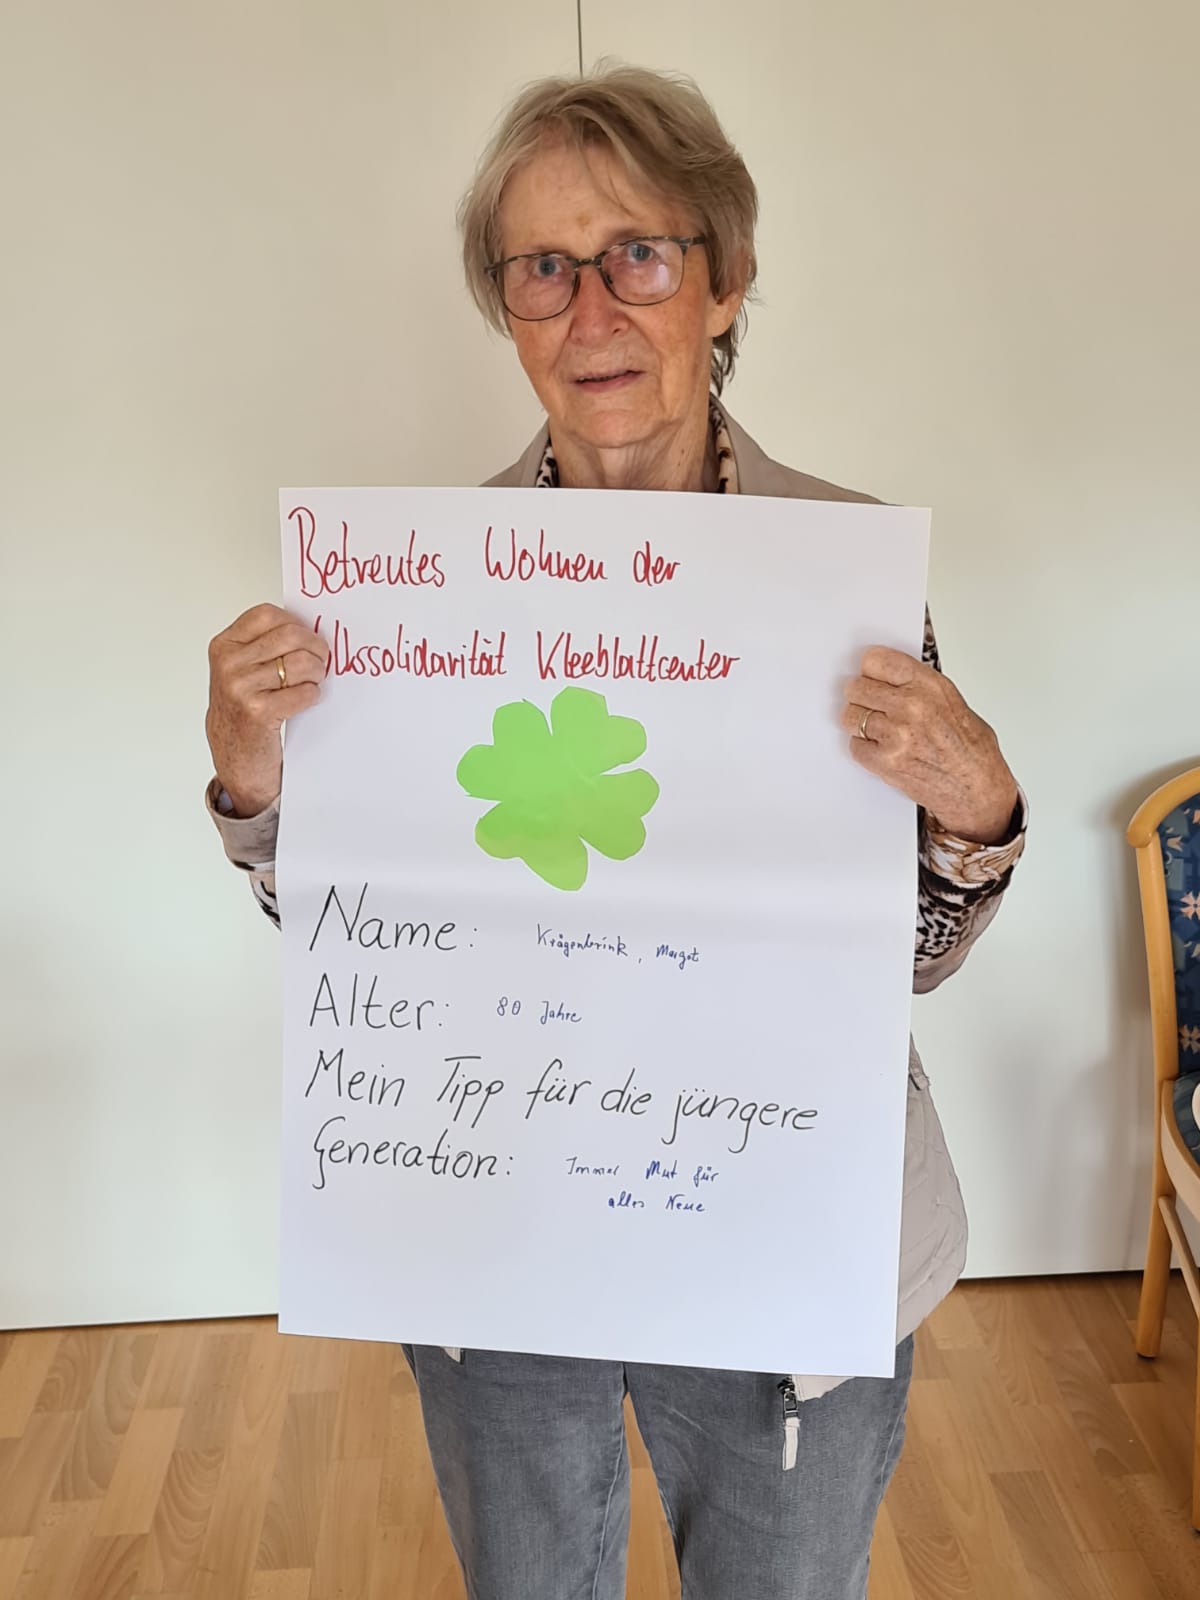 Betreutes Wohnen der
Volkssolidarität Kleeblattcenter
Name: Krägenbrink, Margot
Alter: 80 Jahre
Mein Tipp für die jüngere
Generation: Immer Mut für
alles Neue